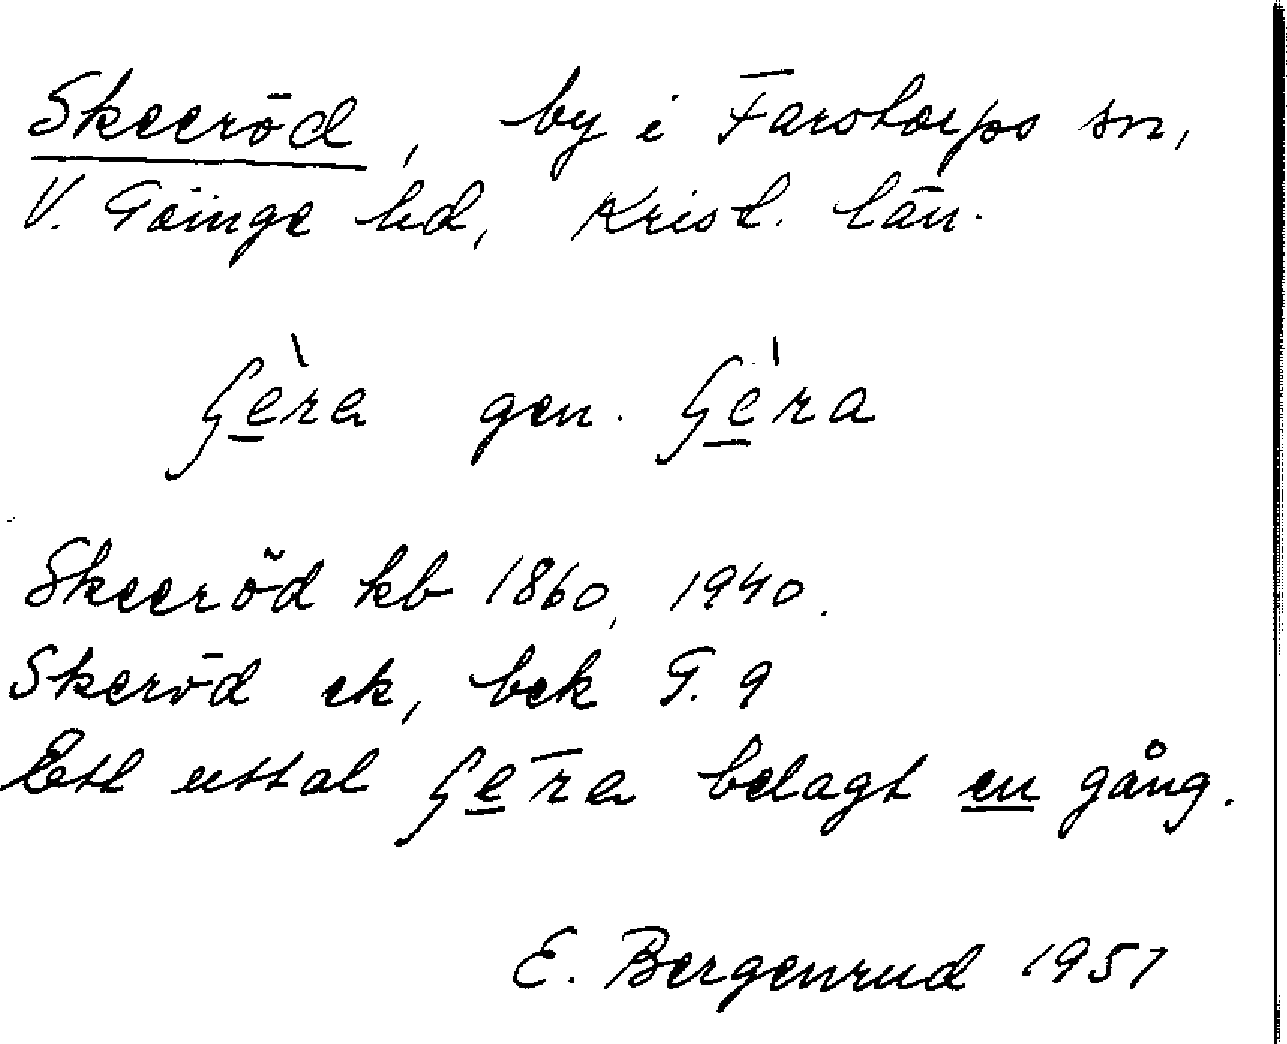 Skeeröd, by i Farstorps sn,
V. Göinge hd, Krist. län.
ʃèra gen. ʃèra
Skeeröd kb 1860, 1940.
Skeröd ek, bek G. 9
Ett uttal ʃēra belagt en gång.
E. Bergenrud 1951